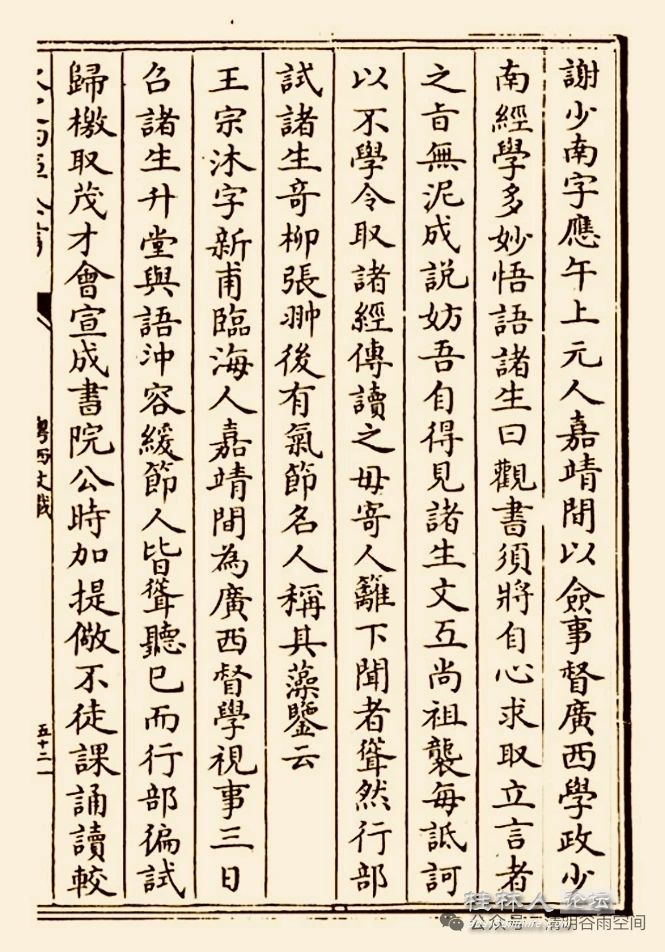 謝少南字應午上元人嘉靖間以僉事督廣西學政少
南經學多妙悟語諸生曰觀書須將自心求取立言者
之旨無泥成説妨吾自得見諸生文互尚祖襲每詆訶
以不學令取諸經傳讀之毋寄人籬下聞者聳然行部
試諸生竒柳張翀後有氣節名人稱其藻鑒云
王宗沐字新甫臨海人嘉靖間為廣西督學視事三日
召諸生升堂與語沖容緩節人皆聳聽已而行部徧試
歸檄取茂才會宣成書院公時加提儆不徒課誦讀較
粤西文載
五十二
桂林人论坛
公众号：清明谷雨空间